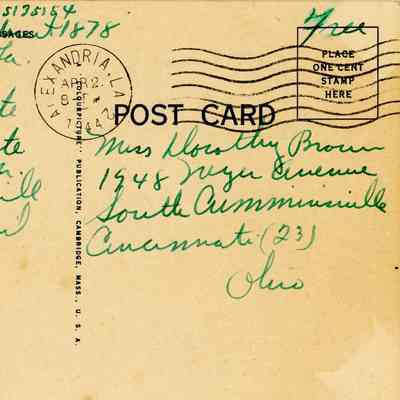 5135154
1878
Free
SSAGES
La.
PLACE
ONE CENT
STAMP
HERE
ALEXANDRIA, LA.
APR 2
1944
POST CARD
COLOURPICTURE PUBLICATION, CAMBRIDGE, MASS., U. S. A.
Miss Dorothy Brown
1948 Avenue
South Cumminsville
Cincinnati (23)
Ohio